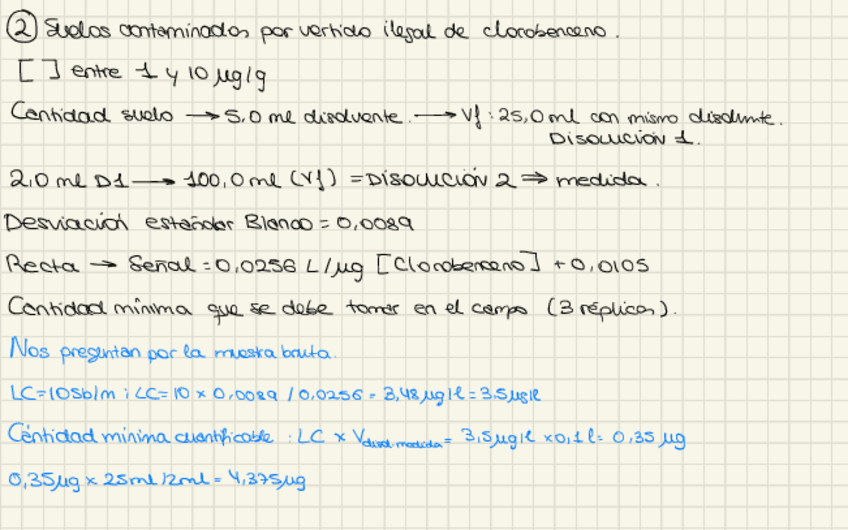 ② Suelos contaminados por vertido ilegal de clorobenceno.
[ ] entre 1 y 10 µg/g
Cantidad suelo → 5,0 ml disolvente. → Vf: 25,0 ml con mismo disolvente.
DISOLUCIÓN 1.
2,0 ml D1 → 100,0 ml (Vf) = DISOLUCIÓN 2 ⇒ medida.
Desviación estándar Blanco = 0,0089
Recta → Señal = 0,0256 L/µg [Clorobenceno] + 0,0105
Cantidad mínima que se debe tomar en el campo (3 réplicas).
Nos preguntan por la muestra bruta.
LC=10Sb/m ; LC= 10 x 0,0089 / 0,0256 = 3,48 µg/l = 3,5 µg/l
Cantidad mínima cuantificable : LC x Vdisol. medida = 3,5 µg/l x 0,1 l = 0,35 µg
0,35 µg x 25ml/2ml = 4,375 µg